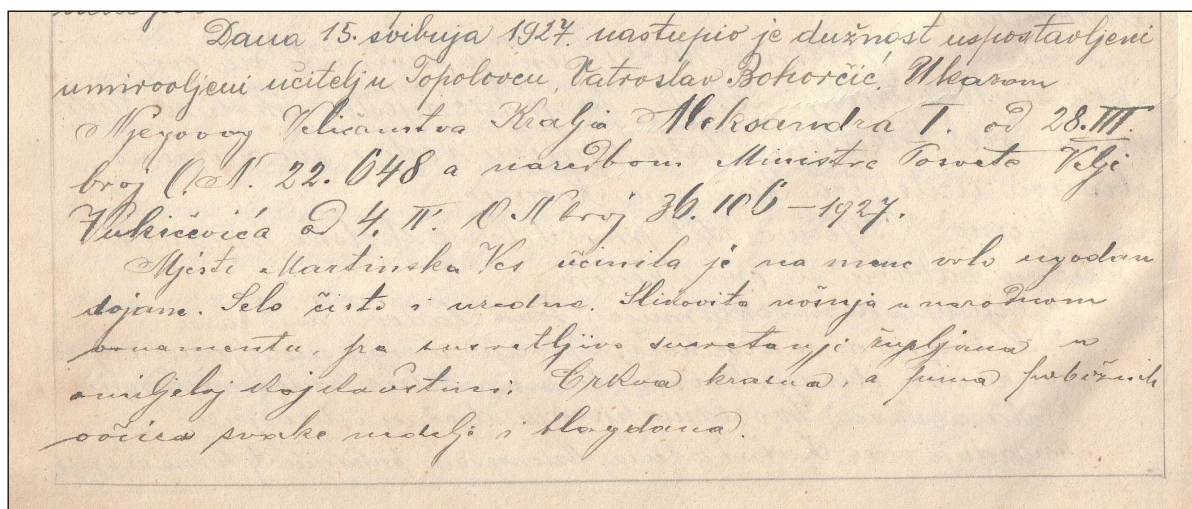 Dana 15. svibnja 1927. nastupio je dužnost uspostavljeni
umirovljeni učitelj u Topolovcu, Vatroslav Bohorčić. Ukazom
Njegovog Veličanstva Kralja Aleksandra I. od 28. III.
broj O.N. 22.648 a naredbom Ministra Prosvete Velje
Vukičevića od 4. IV. O N broj 36.106 – 1927.
Mjesto Martinska Ves učinila je na mene vrlo ugodan
dojam. Selo čisto i uredno. Slikovita nošnja u narodnom
ornamentu, pa susretljivo susretanje župljana u
omiljeloj kajkavštini. Crkva krasna, a puna pobožnih
ovčica svake nedelje i blagdana.